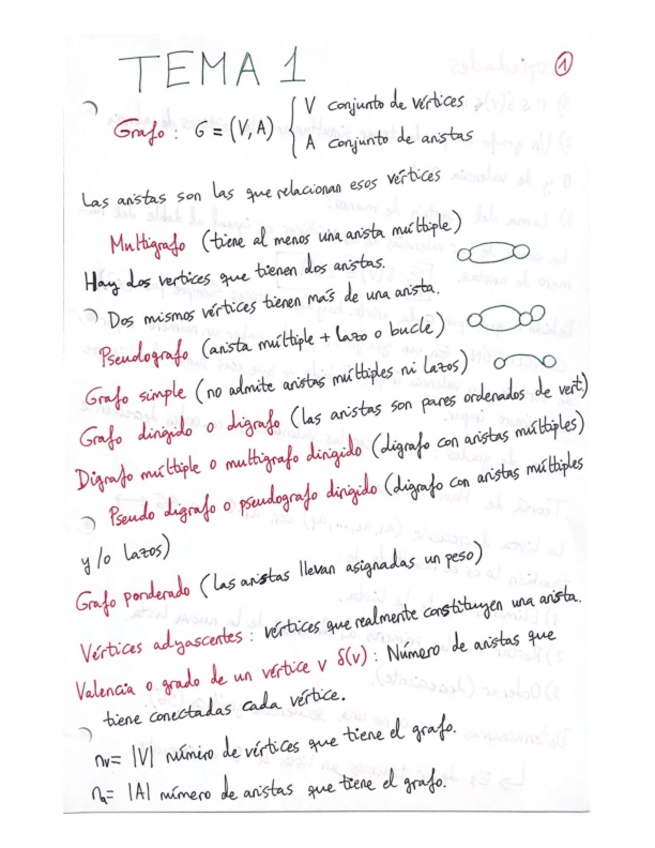 TEMA 1
1
Grafo: G = (V, A) { V conjunto de vértices
A conjunto de aristas
Las aristas son las que relacionan esos vértices
Multigrafo (tiene al menos una arista múltiple)
Hay dos vertices que tienen dos aristas.
Dos mismos vértices tienen más de una arista.
Pseudografo (arista múltiple + lazo o bucle)
Grafo simple (no admite aristas múltiples ni lazos)
Grafo dirigido o digrafo (las aristas son pares ordenados de vert.)
Digrafo múltiple o multigrafo dirigido (digrafo con aristas múltiples)
Pseudo digrafo o pseudografo dirigido (digrafo con aristas múltiples
y/o lazos)
Grafo ponderado (las aristas llevan asignadas un peso)
Vértices adyascentes: vértices que realmente constituyen una arista.
Valencia o grado de un vértice v δ(v): Número de aristas que
tiene conectadas cada vértice.
nv= |V| número de vértices que tiene el grafo.
na= |A| número de aristas que tiene el grafo.